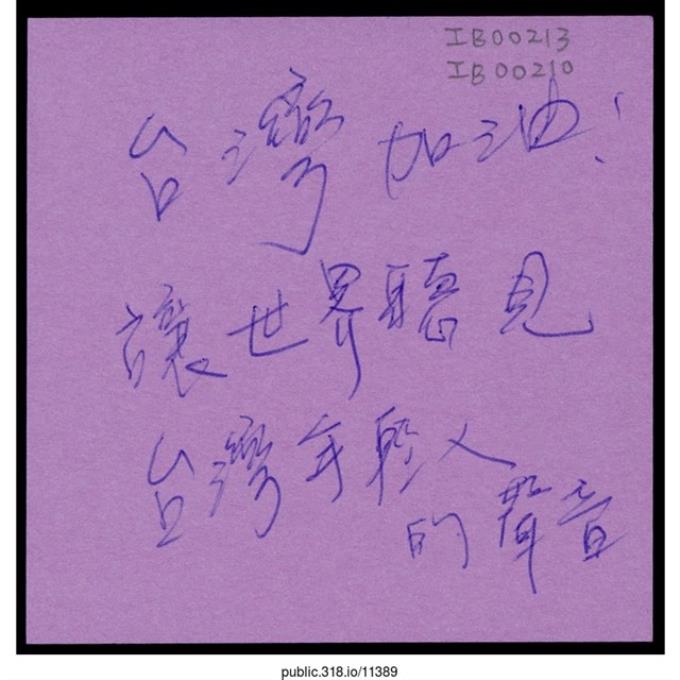 IB00213
IB00210
台灣加油!
讓世界聽見
台灣年輕人
的聲音
public.318.io/11389